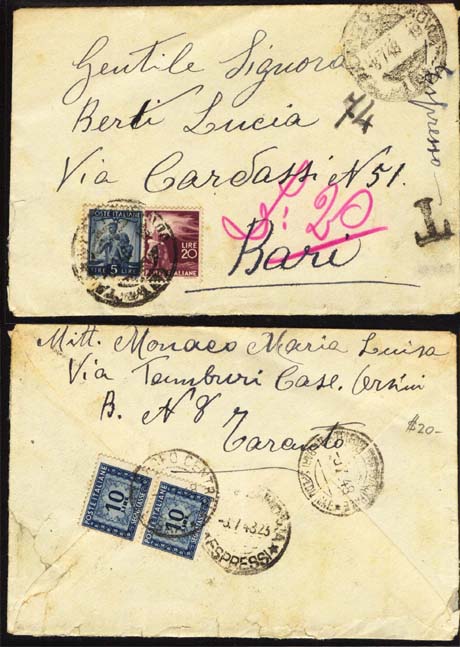 Gentile Signora
Espresso
Berti Lucia 74
Via Cardassi N 51.
T
POSTE ITALIANE
LIRE 5 LIRE
LIRE
20
POSTE ITALIANE
L: 20
Bari
Mitt. Monaco Maria Luisa
Via Tamburi Case. Orsini
B. N 8
$20-
Taranto
POSTE ITALIANE
10
SEGNATASSE
POSTE ITALIANE
10
SEGNATASSE
-3.7.48.23
ESPRESSI